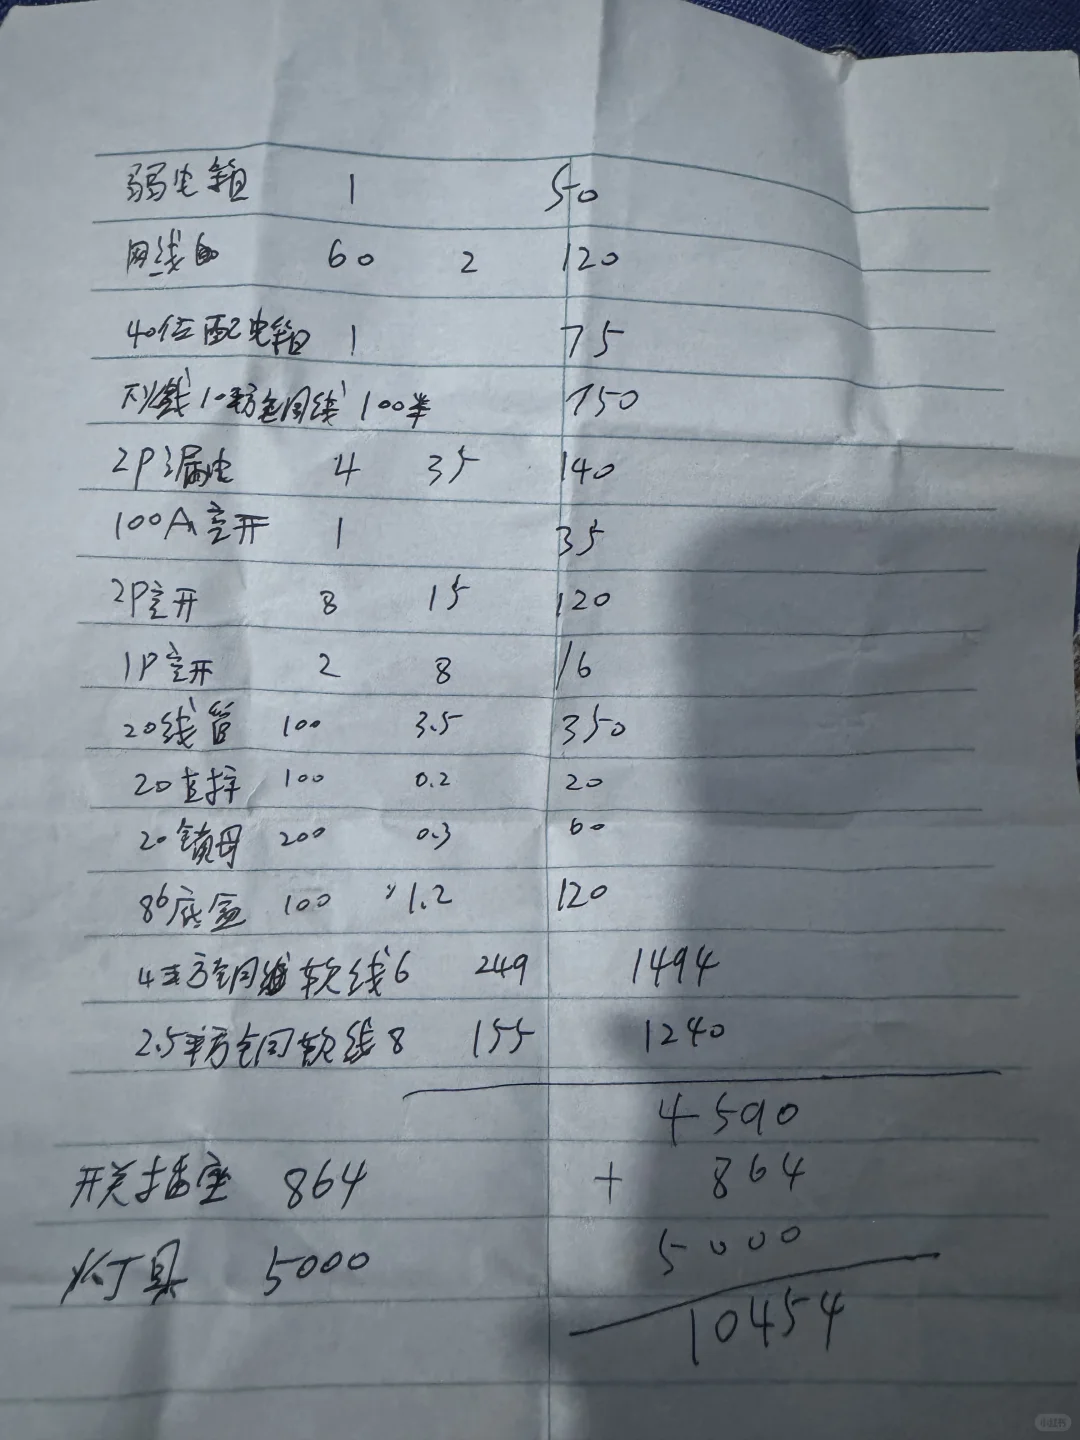 弱电箱 1 50
网线 60 2 120
40位配电箱 1 75
10平方全铜线 100米 750
2P漏电 4 35 140
100A空开 1 35
2P空开 8 15 120
1P空开 2 8 16
20线管 100 3.5 350
20直接 100 0.2 20
20锁母 200 0.3 60
86底盒 100 1.2 120
4平方全铜 软线 6 249 1494
2.5平方全铜软线 8 155 1240
4590
开关插座 864 + 864
灯具 5000 5000
10454
小红书